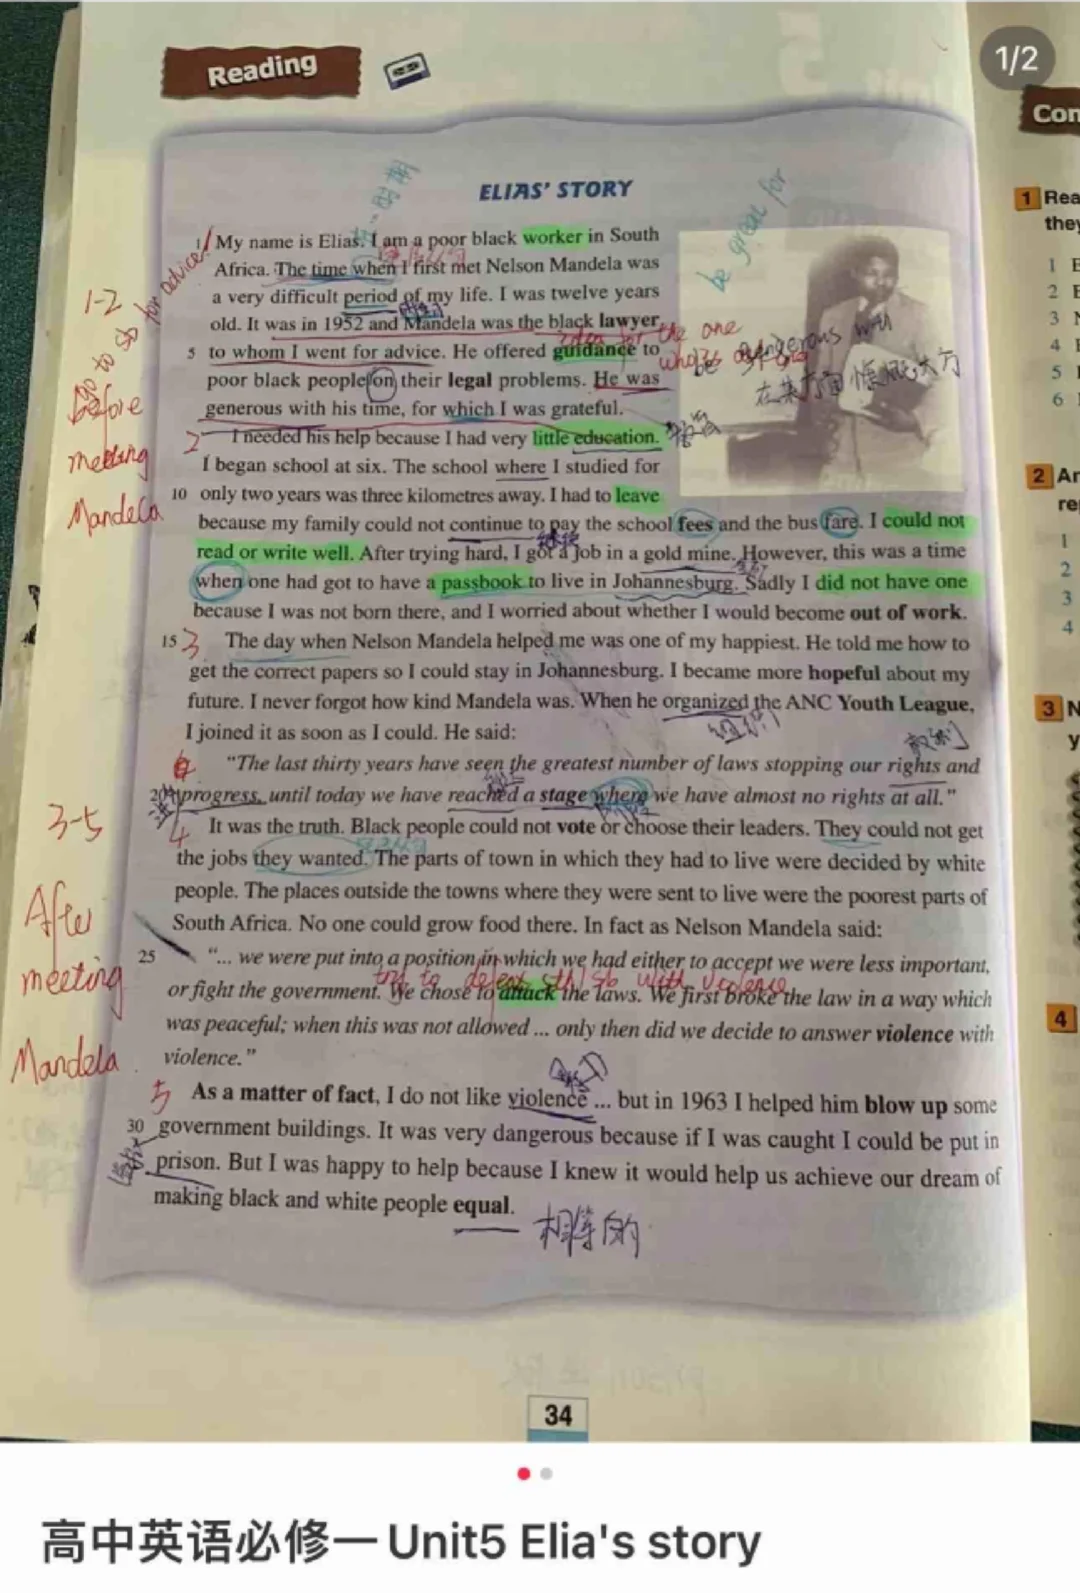 1/2
Reading
Con
ELIAS' STORY
My name is Elias. I am a poor black worker in South
Africa. The time when I first met Nelson Mandela was
a very difficult period of my life. I was twelve years
old. It was in 1952 and Mandela was the black lawyer
5 to whom I went for advice. He offered guidance to
poor black people on their legal problems. He was
generous with his time, for which I was grateful.
2 I needed his help because I had very little education.
I began school at six. The school where I studied for
10 only two years was three kilometres away. I had to leave
because my family could not continue to pay the school fees and the bus fare. I could not
read or write well. After trying hard, I got a job in a gold mine. However, this was a time
when one had got to have a passbook to live in Johannesburg. Sadly I did not have one
because I was not born there, and I worried about whether I would become out of work.
15 3 The day when Nelson Mandela helped me was one of my happiest. He told me how to
get the correct papers so I could stay in Johannesburg. I became more hopeful about my
future. I never forgot how kind Mandela was. When he organized the ANC Youth League,
I joined it as soon as I could. He said:
"The last thirty years have seen the greatest number of laws stopping our rights and
20 progress, until today we have reached a stage where we have almost no rights at all."
4 It was the truth. Black people could not vote or choose their leaders. They could not get
the jobs they wanted. The parts of town in which they had to live were decided by white
people. The places outside the towns where they were sent to live were the poorest parts of
South Africa. No one could grow food there. In fact as Nelson Mandela said:
25 "... we were put into a position in which we had either to accept we were less important,
or fight the government. We chose to attack the laws. We first broke the law in a way which
was peaceful; when this was not allowed ... only then did we decide to answer violence with
violence."
5 As a matter of fact, I do not like violence ... but in 1963 I helped him blow up some
30 government buildings. It was very dangerous because if I was caught I could be put in
prison. But I was happy to help because I knew it would help us achieve our dream of
making black and white people equal.
相等的
1-2
go to sb for advice
before
meeting
Mandela
3-5
After
meeting
Mandela
组织
权利
1 Rea
they
1 E
2 E
3 N
4
5
6
2 An
re
1
2
3
4
3 N
y
4
34
高中英语必修一Unit5 Elia's story